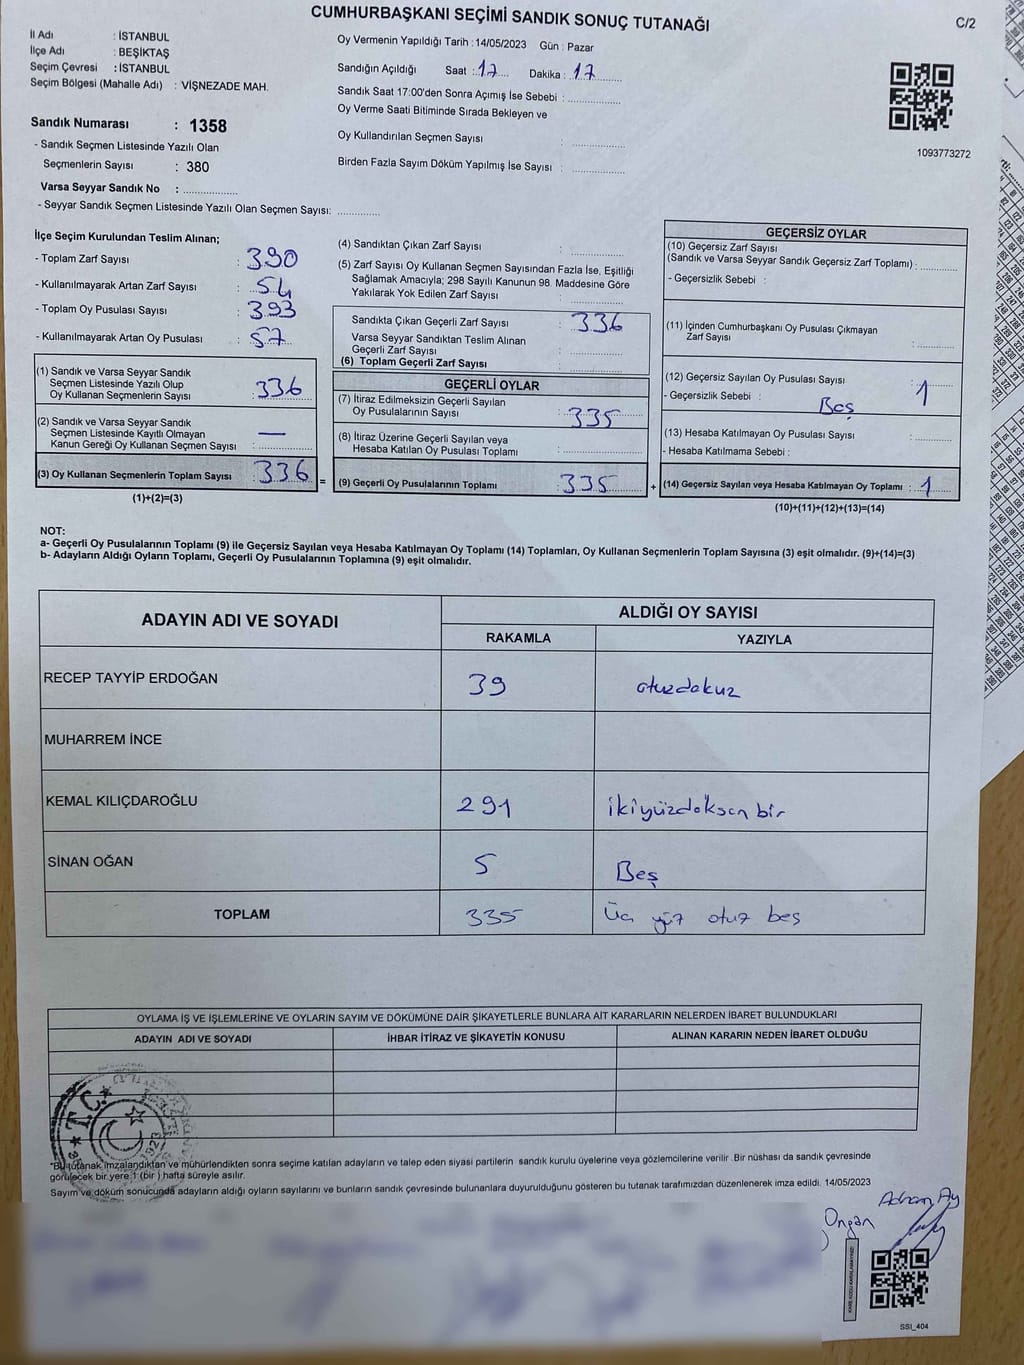 CUMHURBAŞKANI SEÇİMİ SANDIK SONUÇ TUTANAĞI
C/2
İl Adı : İSTANBUL
İlçe Adı : BEŞİKTAŞ
Seçim Çevresi : İSTANBUL
Seçim Bölgesi (Mahalle Adı) : VİŞNEZADE MAH.
Sandık Numarası : 1358
- Sandık Seçmen Listesinde Yazılı Olan
Seçmenlerin Sayısı : 380
Varsa Seyyar Sandık No : ..................
- Seyyar Sandık Seçmen Listesinde Yazılı Olan Seçmen Sayısı: ..............
Oy Vermenin Yapıldığı Tarih : 14/05/2023 Gün : Pazar
Sandığın Açıldığı Saat : 17 Dakika : 17
Sandık Saat 17:00'den Sonra Açımış İse Sebebi :
Oy Verme Saati Bitiminde Sırada Bekleyen ve
Oy Kullandırılan Seçmen Sayısı :
Birden Fazla Sayım Döküm Yapılmış İse Sayısı :
1093773272
İlçe Seçim Kurulundan Teslim Alınan;
- Toplam Zarf Sayısı : 390
- Kullanılmayarak Artan Zarf Sayısı : 54
- Toplam Oy Pusulası Sayısı : 393
- Kullanılmayarak Artan Oy Pusulası : 57
(1) Sandık ve Varsa Seyyar Sandık
Seçmen Listesinde Yazılı Olup
Oy Kullanan Seçmenlerin Sayısı : 336
(2) Sandık ve Varsa Seyyar Sandık
Seçmen Listesinde Kayıtlı Olmayan
Kanun Gereği Oy Kullanan Seçmen Sayısı : —
(3) Oy Kullanan Seçmenlerin Toplam Sayısı : 336 =
(1)+(2)=(3)
(4) Sandıktan Çıkan Zarf Sayısı :
(5) Zarf Sayısı Oy Kullanan Seçmen Sayısından Fazla İse, Eşitliği
Sağlamak Amacıyla; 298 Sayılı Kanunun 98. Maddesine Göre
Yakılarak Yok Edilen Zarf Sayısı :
Sandıkta Çıkan Geçerli Zarf Sayısı : 336
Varsa Seyyar Sandıktan Teslim Alınan
Geçerli Zarf Sayısı :
(6) Toplam Geçerli Zarf Sayısı :
GEÇERLİ OYLAR
(7) İtiraz Edilmeksizin Geçerli Sayılan
Oy Pusulalarının Sayısı : 335
(8) İtiraz Üzerine Geçerli Sayılan veya
Hesaba Katılan Oy Pusulası Toplamı :
(9) Geçerli Oy Pusulalarının Toplamı : 335 +
GEÇERSİZ OYLAR
(10) Geçersiz Zarf Sayısı
(Sandık ve Varsa Seyyar Sandık Geçersiz Zarf Toplamı) :
- Geçersizlik Sebebi :
(11) İçinden Cumhurbaşkanı Oy Pusulası Çıkmayan
Zarf Sayısı :
(12) Geçersiz Sayılan Oy Pusulası Sayısı : 1
- Geçersizlik Sebebi : Boş
(13) Hesaba Katılmayan Oy Pusulası Sayısı :
- Hesaba Katılmama Sebebi :
(14) Geçersiz Sayılan veya Hesaba Katılmayan Oy Toplamı : 1
(10)+(11)+(12)+(13)=(14)
NOT:
a- Geçerli Oy Pusulalarının Toplamı (9) ile Geçersiz Sayılan veya Hesaba Katılmayan Oy Toplamı (14) Toplamları, Oy Kullanan Seçmenlerin Toplam Sayısına (3) eşit olmalıdır. (9)+(14)=(3)
b- Adayların Aldığı Oyların Toplamı, Geçerli Oy Pusulalarının Toplamına (9) eşit olmalıdır.
ADAYIN ADI VE SOYADI
ALDIĞI OY SAYISI
RAKAMLA YAZIYLA
RECEP TAYYİP ERDOĞAN 39 otuzdokuz
MUHARREM İNCE
KEMAL KILIÇDAROĞLU 291 ikiyüzdoksan bir
SİNAN OĞAN 5 Beş
TOPLAM 335 Üç yüz otuz beş
OYLAMA İŞ VE İŞLEMLERİNE VE OYLARIN SAYIM VE DÖKÜMÜNE DAİR ŞİKAYETLERLE BUNLARA AİT KARARLARIN NELERDEN İBARET BULUNDUKLARI
ADAYIN ADI VE SOYADI İHBAR İTİRAZ VE ŞİKAYETİN KONUSU ALINAN KARARIN NEDEN İBARET OLDUĞU
T.C.
*Bu tutanak imzalandıktan ve mühürlendikten sonra seçime katılan adayların ve talep eden siyasi partilerin sandık kurulu üyelerine veya gözlemcilerine verilir. Bir nüshası da sandık çevresinde
görülecek bir yere 1 (bir ) hafta süreyle asılır.
Sayım ve döküm sonucunda adayların aldığı oyların sayılarını ve bunların sandık çevresinde bulunanlara duyurulduğunu gösteren bu tutanak tarafımızdan düzenlenerek imza edildi. 14/05/2023
Adnan Ay
Ongan
SSI_404